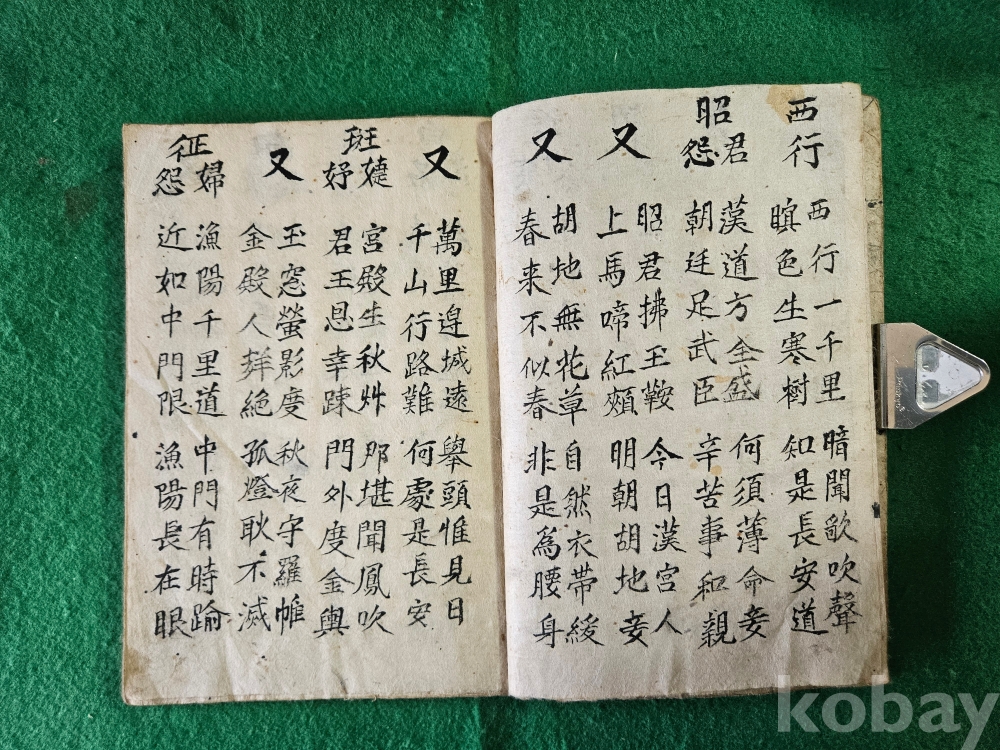 西行
西行一千里
暝色生寒樹
暗聞歌吹聲
知是長安道
昭君怨
漢道方全盛
朝廷足武臣
何須薄命妾
辛苦事和親
又
昭君拂玉鞍
上馬啼紅頰
今日漢宮人
明朝胡地妾
又
胡地無花草
春来不似春
自然衣帶緩
非是為腰身
又
萬里邉城遠
千山行路難
舉頭惟見日
何處是長安
班婕妤
宮殿生秋艸
君王恩幸疎
那堪聞鳳吹
門外度金輿
又
玉窓螢影度
金殿人声絕
秋夜守羅帷
孤燈耿不滅
征婦怨
漁陽千里道
近如中門限
中門有時踰
漁陽長在眼
kobay